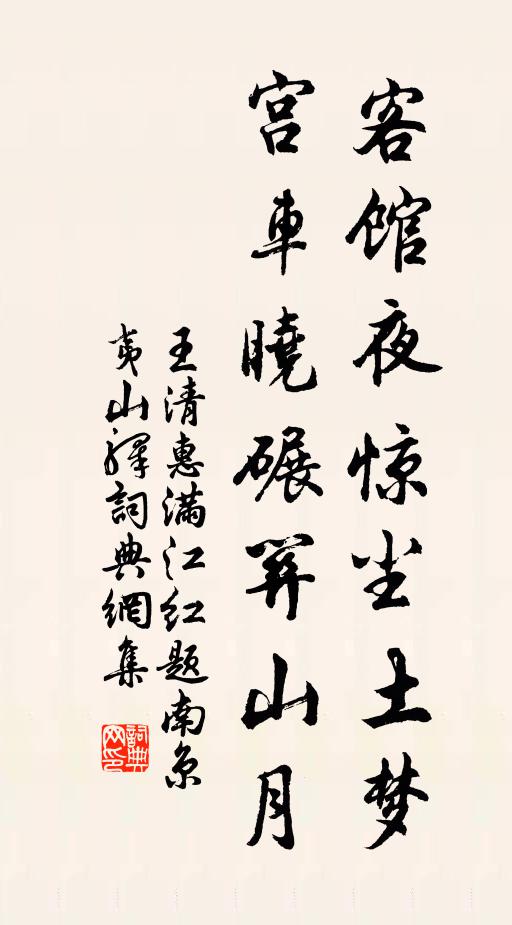 客馆夜惊尘土梦
宫車曉碾关山月
王清惠满江红题南京
夷山驛詞典網集
詞典网印